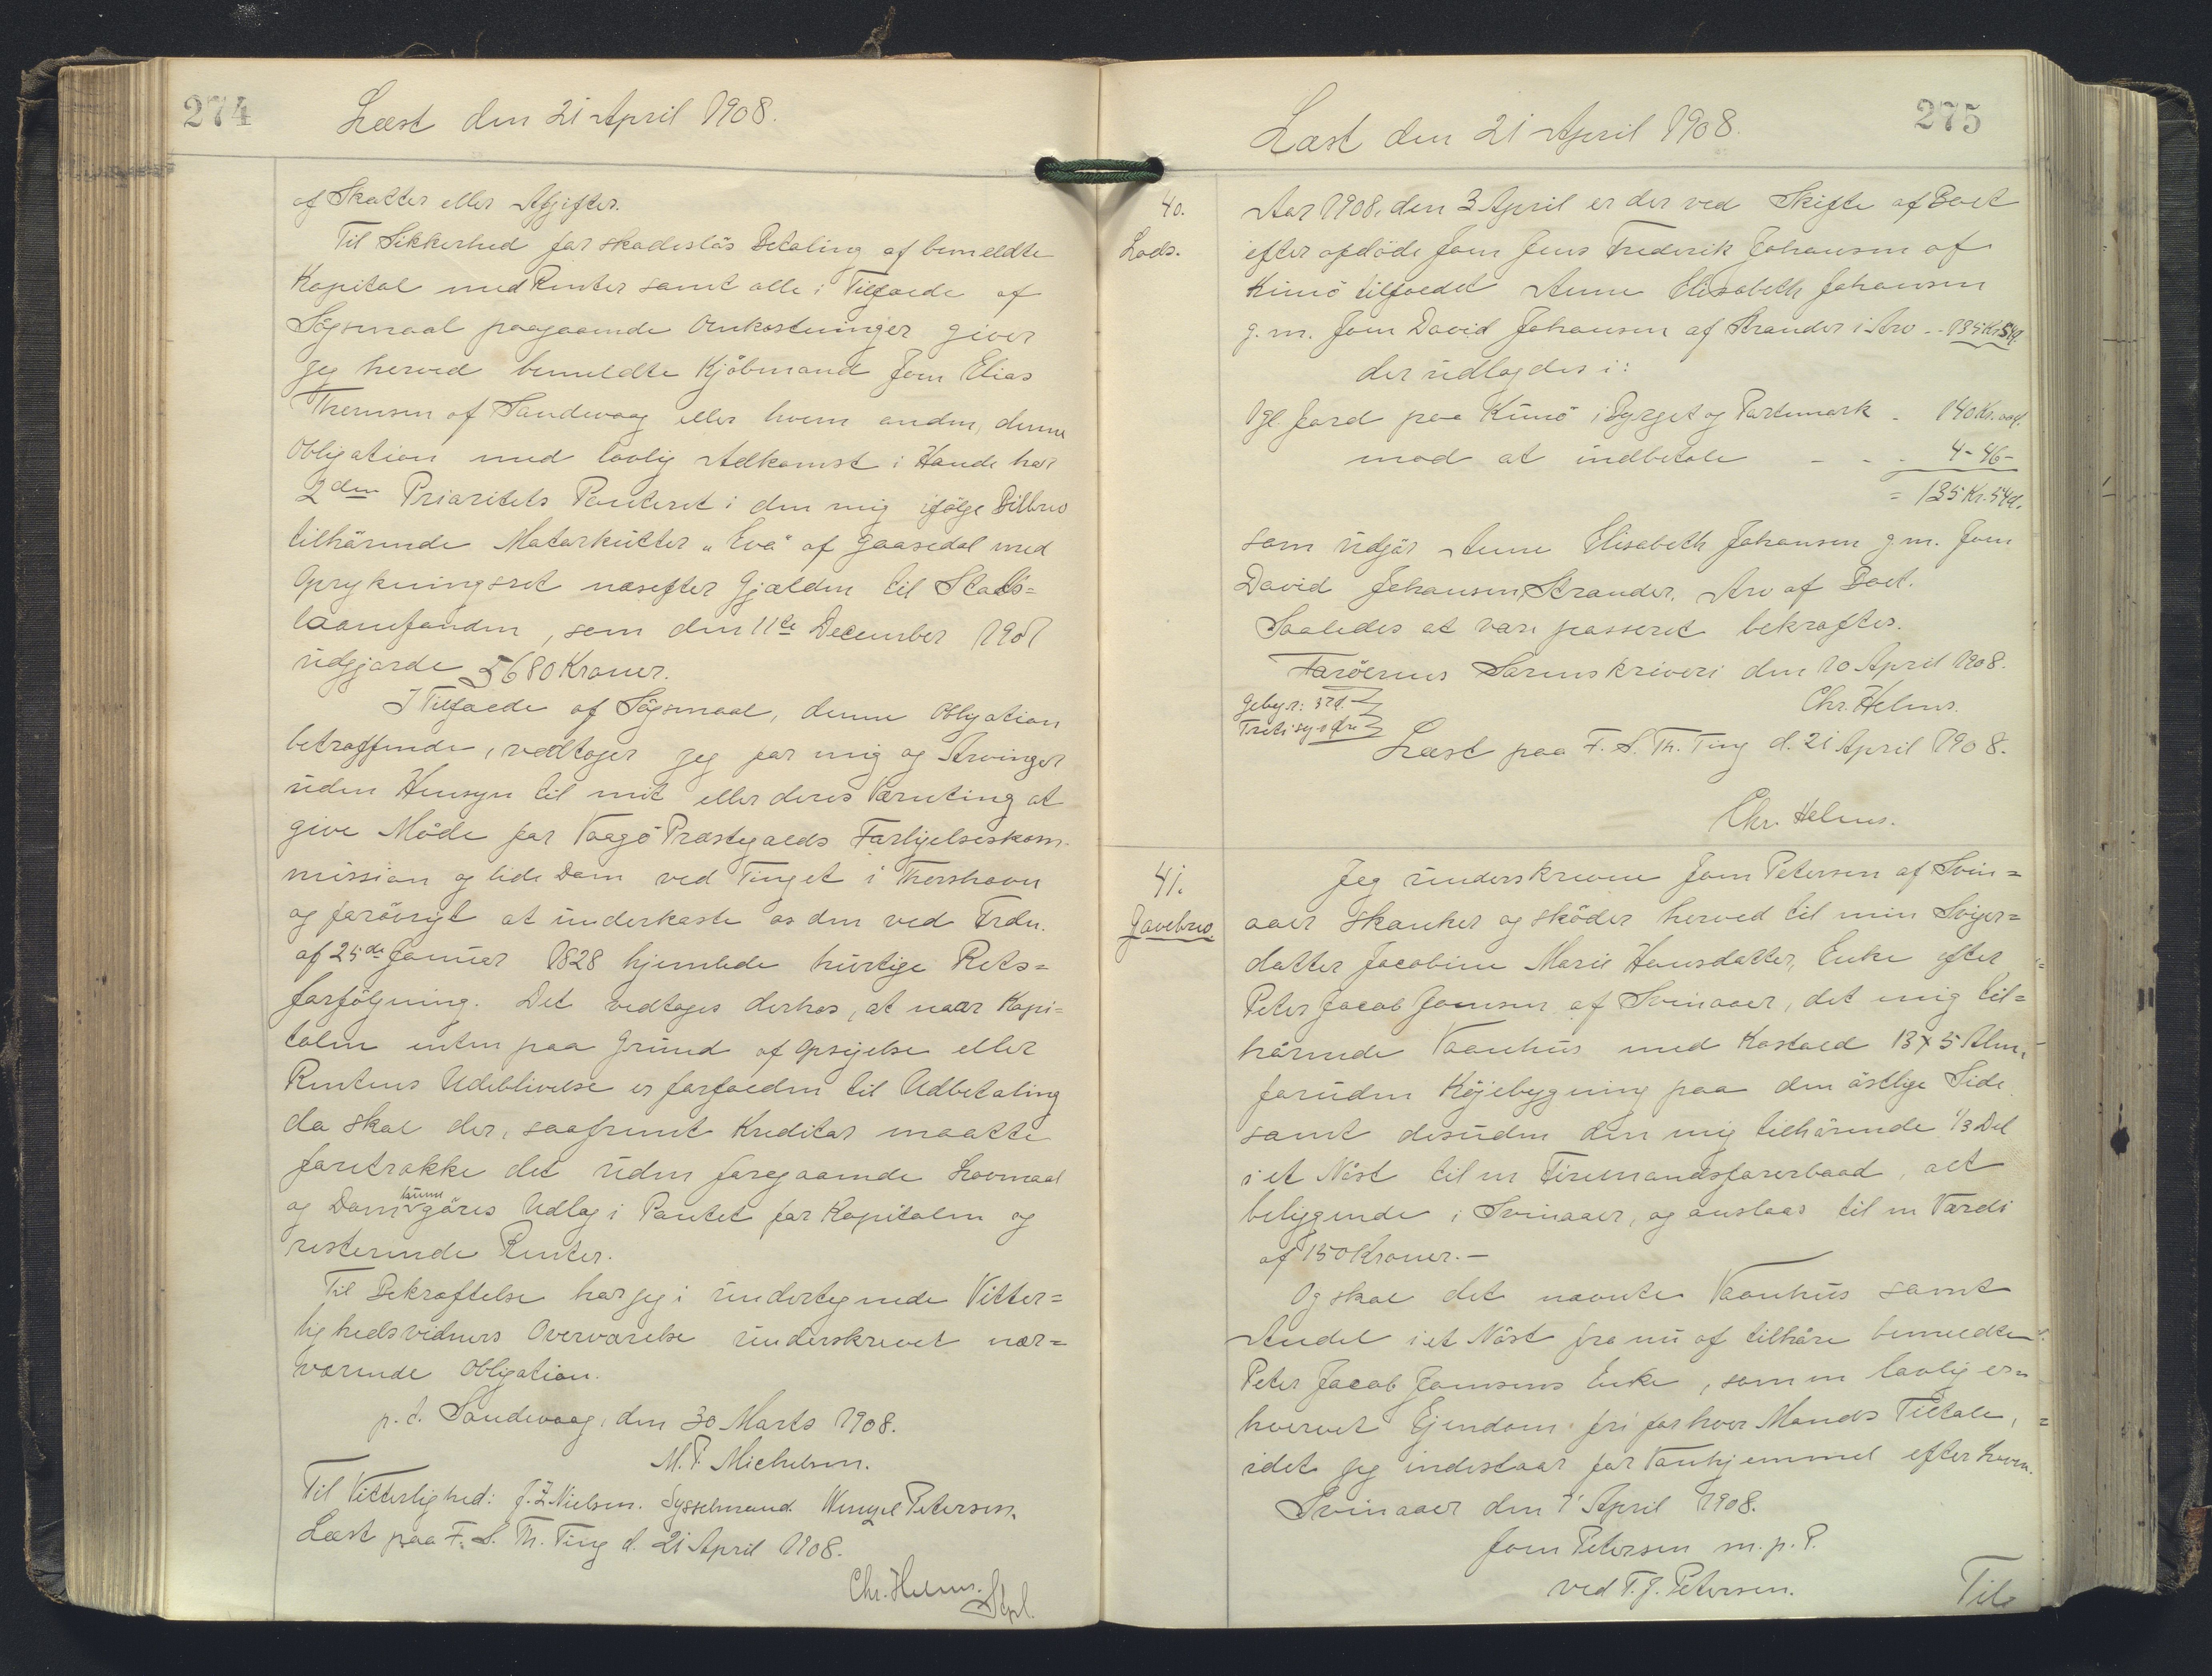 274
Læst den 21 April 1908.
af Skatter eller Afgifter.
Til Sikkerhed for skadeslös Betaling af bemeldte
Kapital med Renter samt alle i Tilfælde af
Sögsmaal paagaaende Omkostninger giver
jeg herved bemeldte Kjöbmand Joen Elias
Thomsen af Sandevaag eller hvem anden, denne
Obligation med lovlig Adkomst i Hænde har
2den Prioritets Panteret i den mig ifölge Bilbrev
tilhörende Motorkutter "Eva" af Gaasedal med
Oprykningsret næsefter Gjælden til Stats=
laanefonden, som den 11te December 1907
udgjorde 5680 Kroner.
I Tilfælde af Sögsmaal, denne Obligation
betræffende, vedtager jeg for mig og Arvinger
uden Hensyn til mit eller deres Værneting at
give Möde for Vaagö Præstegjælds Forligelseskom-
mission og lide Dom ved Tinget i Thorshavn
og forövrigt at underkaste os den ved Frdn.
af 25de Januar 1828 hjemlede hurtige Rets=
forfölgning. Det vedtages derhos, at naar Kapi=
talen enten paa Grund af Opsigelse eller
Rentens Udeblivelse er forfalden til Udbetaling
da skal der, saafremt Kreditor maatte
foretrække det uden foregaaende Lovmaal
og Dom kunne göres Udlæg i Pantet for Kapitalen og
resterende Renter.
Til Bekræftelse har jeg i undertegnede Vitter=
lighedsvidners Overværelse underskrevet nær=
værende Obligation.
p.t. Sandevaag, den 30 Marts 1908.
M.P. Michelsen.
Til Vitterlighed: J.Z. Nielsen. Sysselmand Wenzel Petersen.
Læst paa F. S. Th. Ting d. 21 April 1908.
Chr. Helms.
275
Læst den 21 April 1908.
40.
Lods.
Aar 1908, den 3 April er der ved Skifte af Boet
efter afdöde Joen Jens Frederik Johansen af
Kunö tilfaldet Anne Elisabeth Johansen
g.m. Joen David Johansen af Strander i Arv - - 135 Kr 54 Ø.
der udlagdes i:
1 Gl Jord paa Kunö i Bygget og Partemark - 140 Kr. 00 Ø.
mod at indbetale - - - 4 - 46 -
= 135 Kr. 54 Ø.
som udgör Anne Elisabeth Johansen g.m. Joen
David Johansen, Strander, Arv af Boet.
Saaledes at være passeret bekræftes.
Færöernes Sorenskriveri den 10 April 1908.
Gebyr:
Chr. Helms.
Læst paa F. S. Th. Ting d. 21 April 1908.
Chr. Helms.
41.
Gavebrev.
Jeg underskrevne Joen Petersen af Svin=
aaer skænker og sköder herved til min Sviger=
datter Jacobine Marie Hansdatter, Enke efter
Peter Jacob Joensen af Svinaaer, det mig til=
hörende Vaanhus med Kostald 13 x 5 Alen,
foruden Köjebygning paa den östlige Side
samt desuden den mig tilhörende 1/3 Del
i et Nöst til en Firemandsfarerbaad, alt
beliggende i Svinaaer, og anslaas til en Værdi
af 150 Kroner. —
Og skal det nævnte Vaanhus samt
Andel i et Nöst fra nu af tilhöre bemeldte
Peter Jacob Joensens Enke, som en lovlig er=
hvervet Ejendom fri for hver Mands Tiltale,
idet jeg indestaar for Vanhjemmel efter Loven.
Svinaaer den 7 April 1908.
Joen Petersen m.p.P.
ved T.J. Petersen.
Til